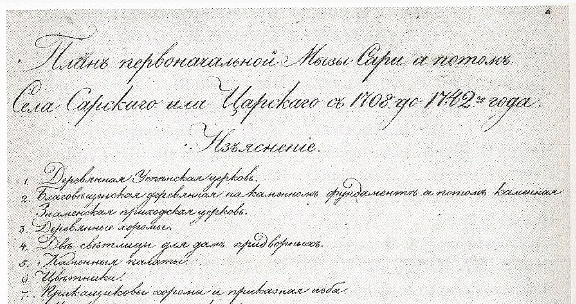 Планъ первоначальной Мызы Сари а потомъ
Села Сарскаго или Царскаго съ 1708 до 1742го года.
Изъясненіе.
1. Деревянная Успѣнская церковь.
2. Благовѣщенская деревянная на каменномъ фундаментѣ а потомъ каменная
Знаменская приходская церковь.
3. Деревянные хоромы.
4. Двѣ свѣтлицы для дамъ придворныхъ.
5. Каменныя палаты.
6. Цвѣтники.
7. Прикащиковы хоромы и приказная изба.